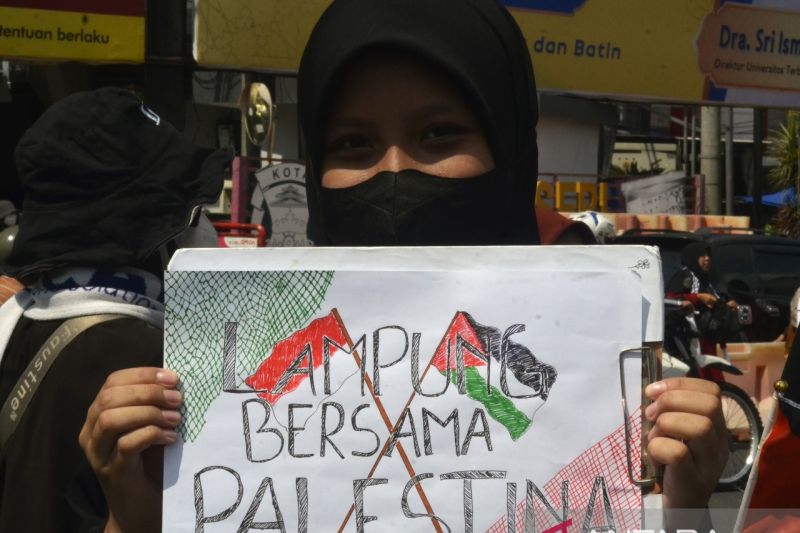 tentuan berlaku
dan Batin
Dra. Sri Ism
Direktur Universitas Terb
KOTA
Faustine
LAMPUNG
BERSAMA
PALESTINA
ANTARA